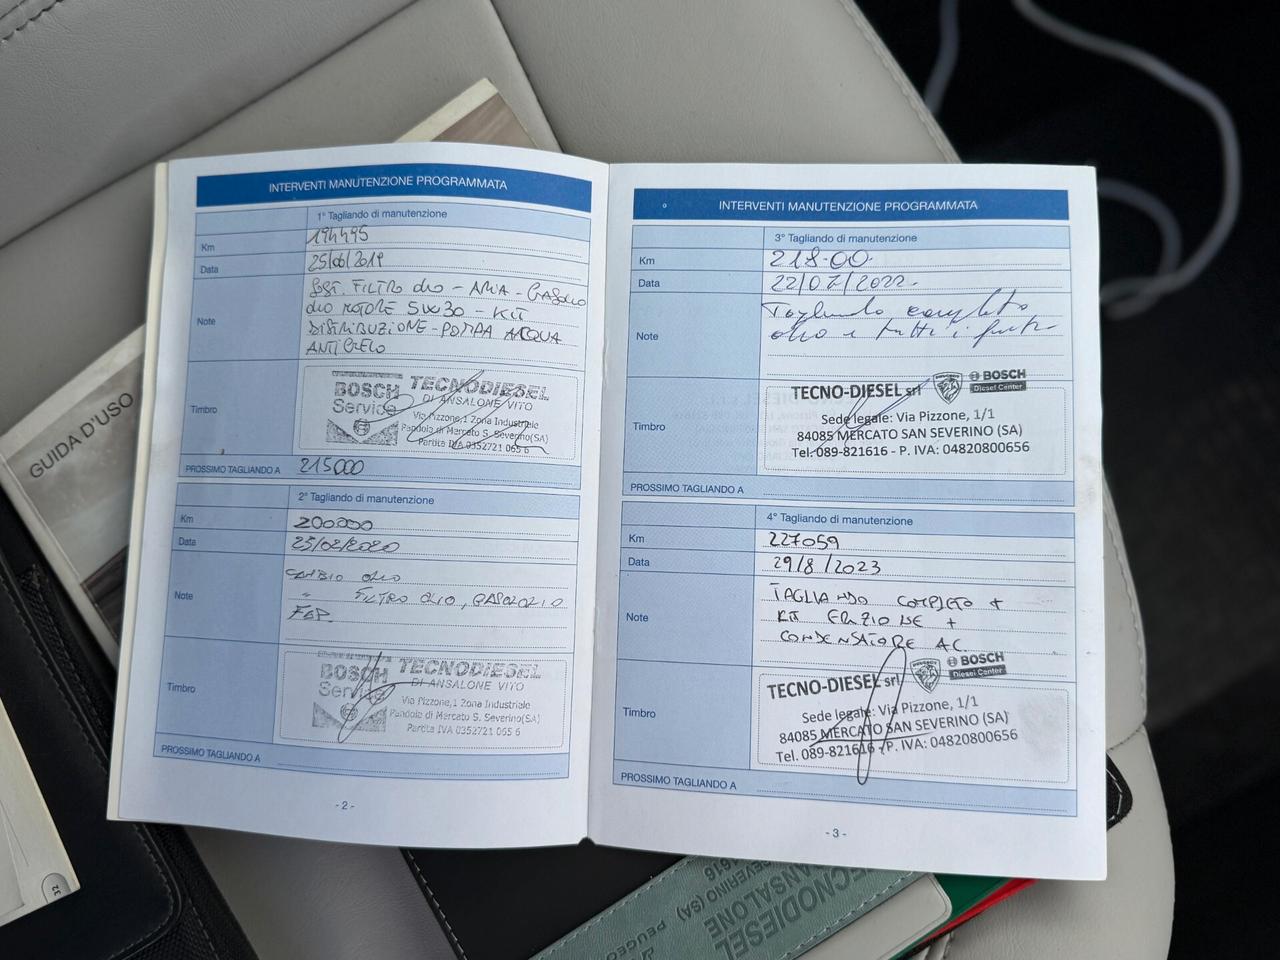 GUIDA D'USO
INTERVENTI MANUTENZIONE PROGRAMMATA
1° Tagliando di manutenzione
Km 194495
Data 25/06/2019
Note SOST. FILTRO OLIO - ARIA - GASOLIO
OLIO MOTORE 5W30 - KIT
DISTRIBUZIONE - POMPA ACQUA
ANTIGELO
Timbro
BOSCH Service
TECNODIESEL
DI ANSALONE VITO
Via Pizzone,1 Zona Industriale
Pandola di Mercato S. Severino(SA)
Partita IVA 0352721 065 6
PROSSIMO TAGLIANDO A 215000
2° Tagliando di manutenzione
Km 200000
Data 25/02/2020
Note CAMBIO OLIO
" FILTRO OLIO, GASOLIO
FAP.
Timbro
BOSCH Service
TECNODIESEL
DI ANSALONE VITO
Via Pizzone,1 Zona Industriale
Pandola di Mercato S. Severino(SA)
Partita IVA 0352721 065 6
PROSSIMO TAGLIANDO A
- 2 -
INTERVENTI MANUTENZIONE PROGRAMMATA
3° Tagliando di manutenzione
Km 218.00.
Data 22/07/2022.
Note Tagliando completo
olio e tutti i filtri
Timbro
TECNO-DIESEL srl PEUGEOT BOSCH
Diesel Center
Sede legale: Via Pizzone, 1/1
84085 MERCATO SAN SEVERINO (SA)
Tel. 089-821616 - P. IVA: 04820800656
PROSSIMO TAGLIANDO A
4° Tagliando di manutenzione
Km 227059
Data 29/8/2023
Note TAGLIANDO COMPLETO +
KIT +
CONDENSATORE A.C.
Timbro
TECNO-DIESEL srl PEUGEOT BOSCH
Diesel Center
Sede legale: Via Pizzone, 1/1
84085 MERCATO SAN SEVERINO (SA)
Tel. 089-821616 - P. IVA: 04820800656
PROSSIMO TAGLIANDO A
- 3 -
32
TECNODIESEL
ANSALONE
SEVERINO (SA) PEUGEO
1616